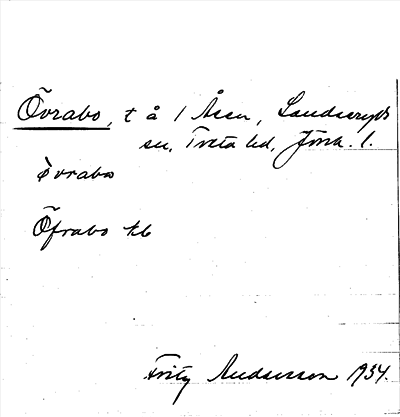 Övrabo, t å 1 Åsen, Sandseryds
sn, Tveta hd, Jönk. l.
òvrabω
Öfrabo kb
Fritz Andersson 1934.